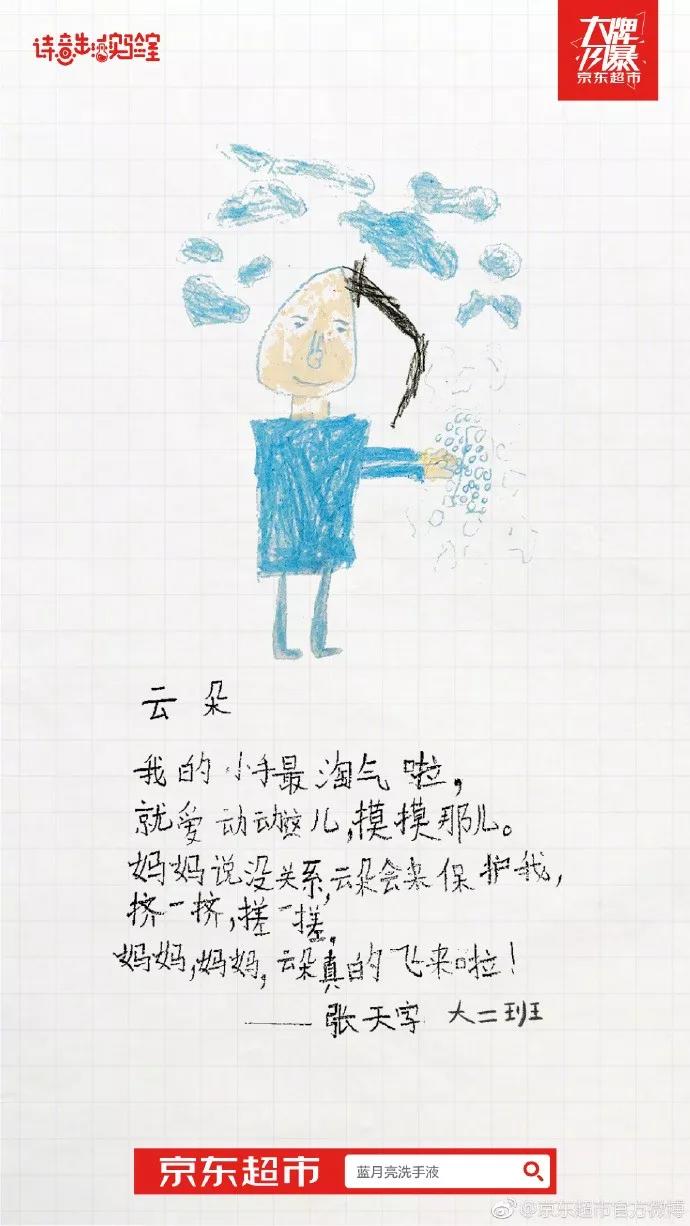 诗意生活实验室
大牌
风暴
京东超市
云朵
我的小手最淘气啦,
就爱动动这儿,摸摸那儿。
妈妈说没关系,云朵会来保护我,
挤一挤,搓一搓,
妈妈,妈妈,云朵真的飞来啦!
——张天宇 大二班
京东超市 蓝月亮洗手液
@京东超市官方微博